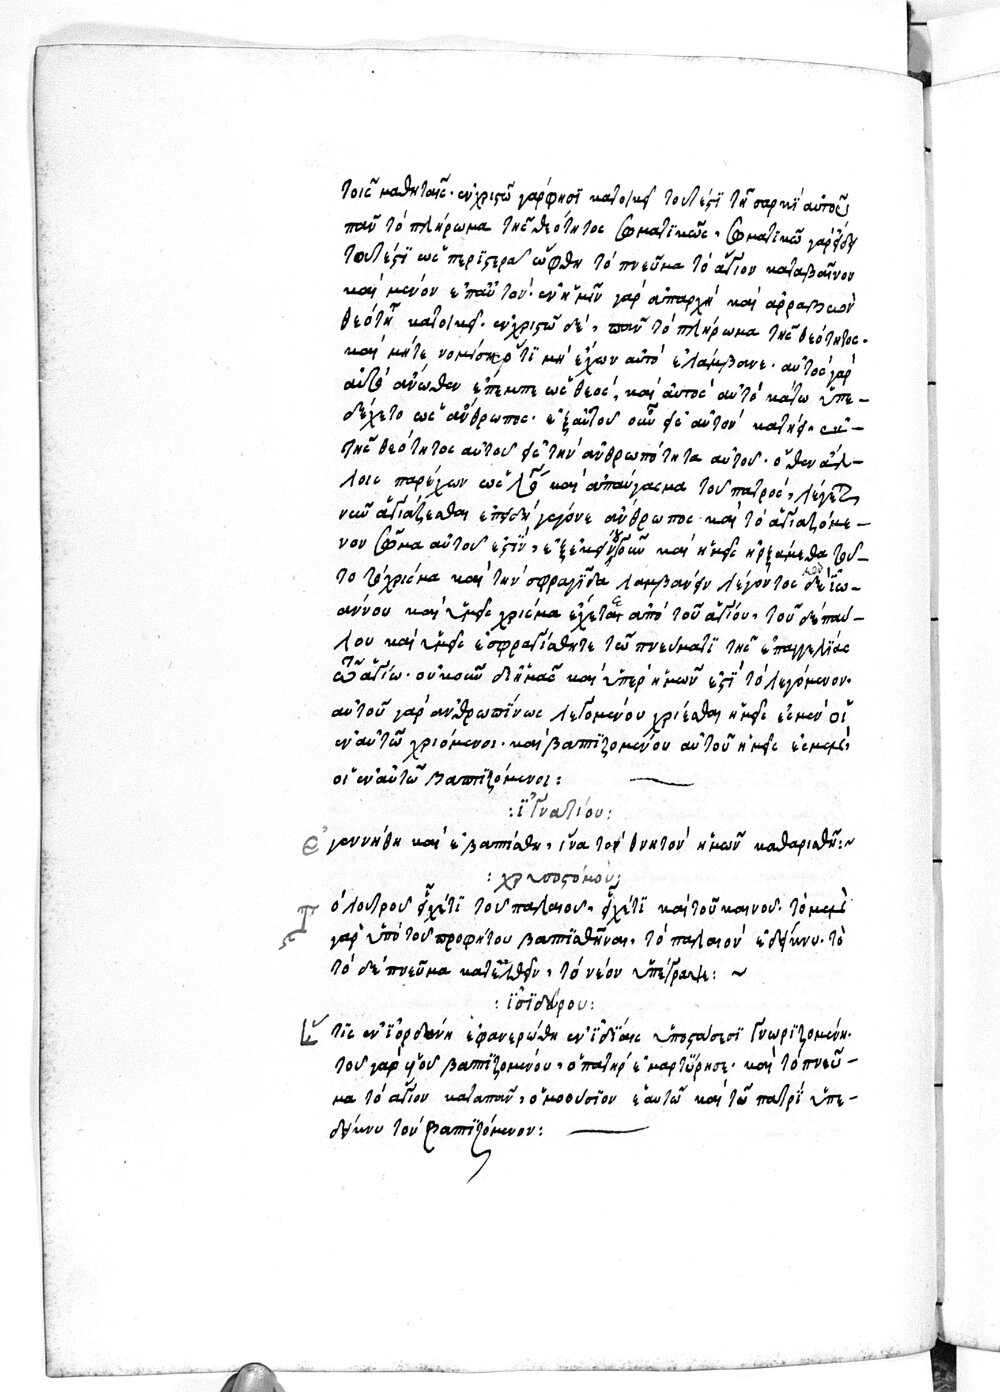 τοις μαθηταῖς. ἐν χριστῶ γάρ φησι κατοικεῖ τουτέστι τῆ σαρκὶ αὐτοῦ
πᾶν τὸ πλήρωμα τῆς θεότητος σωματικῶς. σωματικῶ γὰρ εἴδει
τουτέστι ὡς περιστερὰ ὤφθη τὸ πνεῦμα τὸ ἅγιον καταβαῖνον
καὶ μένον ἐπ αὐτόν. ἐν ἡμῖν γὰρ ἀπαρχὴ καὶ ἀρραβὼν
θεότητος κατοικεῖ. ἐν χριστῶ δὲ, πᾶν τὸ πλήρωμα τῆς θεότητος.
καὶ μήτε νομίση ὅτι μὴ ἔχων αὐτὸ ἐλάμβανε. αὐτὸς γὰρ
αὐτὸ ἄνωθεν ἔπεμπε ὡς θεὸς, καὶ αὐτὸς αὐτὸ κάτω ὑπε-
δέχετο ὡς ἄνθρωπος. ἐξ αὐτοῦ οὖν εἰς αὐτὸν κατήει. ἐκ
τῆς θεότητος αὐτοῦ εἰς τὴν ἀνθρωπότητα αὐτοῦ. ὅθεν ἀλ-
λοις παρέχων ὡς καὶ ἀπαύγασμα τοῦ πατρὸς, λέγεται
νῦν ἁγιάζεσθαι ἐπειδὴ γέγονε ἄνθρωπος καὶ τὸ ἁγιαζόμε-
νον σῶμα αὐτοῦ ἐστιν, ἐξ ἐκείνου οὖν καὶ ἡμεῖς ἠρξάμεθα τοῦ-
το τὸ χρίσμα καὶ τὴν σφραγῖδα λαμβάνειν λέγοντος μὲν ἰω-
άννου καὶ ὑμεῖς χρίσμα ἔχετε ἀπὸ τοῦ ἁγίου, τοῦ δὲ παύ-
λου καὶ ὑμεῖς ἐσφραγίσθητε τῶ πνεύματι τῆς ἐπαγγελίας
τῶ ἁγίω. οὐκοῦν δι ἡμᾶς καὶ ὑπὲρ ἡμῶν ἐστὶ τὸ λεγόμενον.
αὐτοῦ γὰρ ἀνθρωπίνως λεγομένου χρίεσθαι ἡμεῖς ἐσμὲν οἱ
ἐν αὐτῶ χριόμενοι. καὶ βαπτιζομένου αὐτοῦ ἡμεῖς ἐσμὲν
οἱ ἐν αὐτῶ βαπτιζόμενοι:
: ἰγνατίου:
ἐγεννήθη καὶ ἐβαπτίσθη, ἵνα τὸ θνητὸν ἡμῶν καθαρισθῆ:~
: χρυσοστόμου:
Τὸ λουτροῦ εἶχέ τι τοῦ παλαιοῦ, εἶχέ τι καὶ τοῦ καινοῦ. τὸ μὲν
γὰρ ὑπὸ τοῦ προφήτου βαπτισθῆναι, τὸ παλαιὸν ἐδείκνυ. τὸ
τὸ δὲ πνεῦμα κατελθεῖν, τὸ νέον ὑπέγραψε: ~
: ἰσιδώρου:
ἐν ἰορδάνη ἐφανερώθη ἐν ἰδίαις ὑποστάσεσι γνωριζομένη.
τοῦ γὰρ υἱοῦ βαπτιζομένου, ὁ πατὴρ ἐμαρτύρησε. καὶ τὸ πνεῦ-
μα τὸ ἅγιον καταπτὰν, ὁμοούσιον ἑαυτῶ καὶ τῶ πατρὶ ὑπε-
δείκνυ τὸν βαπτιζόμενον: